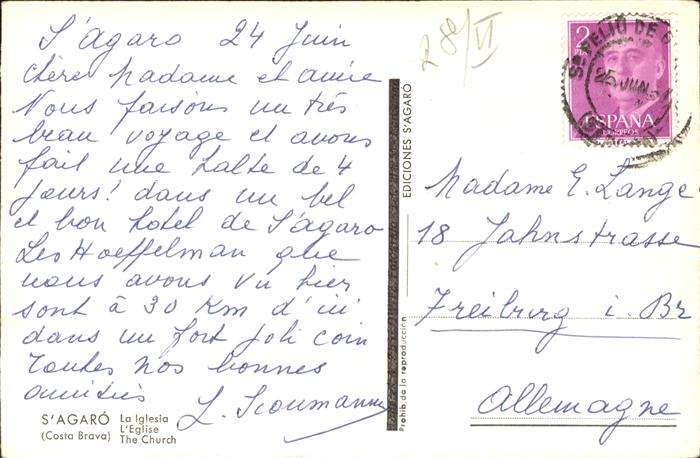 S'agaro 24 Juin
chère Madame et amie
Nous faisons un très
beau voyage et avons
fait une halte de 4
jours! dans un bel
et bon hotel de S'agaro
Les Hoeffelman que
nous avons vu hier
sont à 30 Km d'ici
dans un fort joli coin
Toutes nos bonnes
amitiés
S'AGARÓ
(Costa Brava)
La Iglesia
L'Eglise
The Church
EDICIONES S'AGARÓ
Prohib. de la reproducción
28/VI
2
PTAS
ESPAÑA
CORREOS
25 JUN
Madame E. Lange
18 Jahnstrasse
Freiburg i. Br
Allemagne